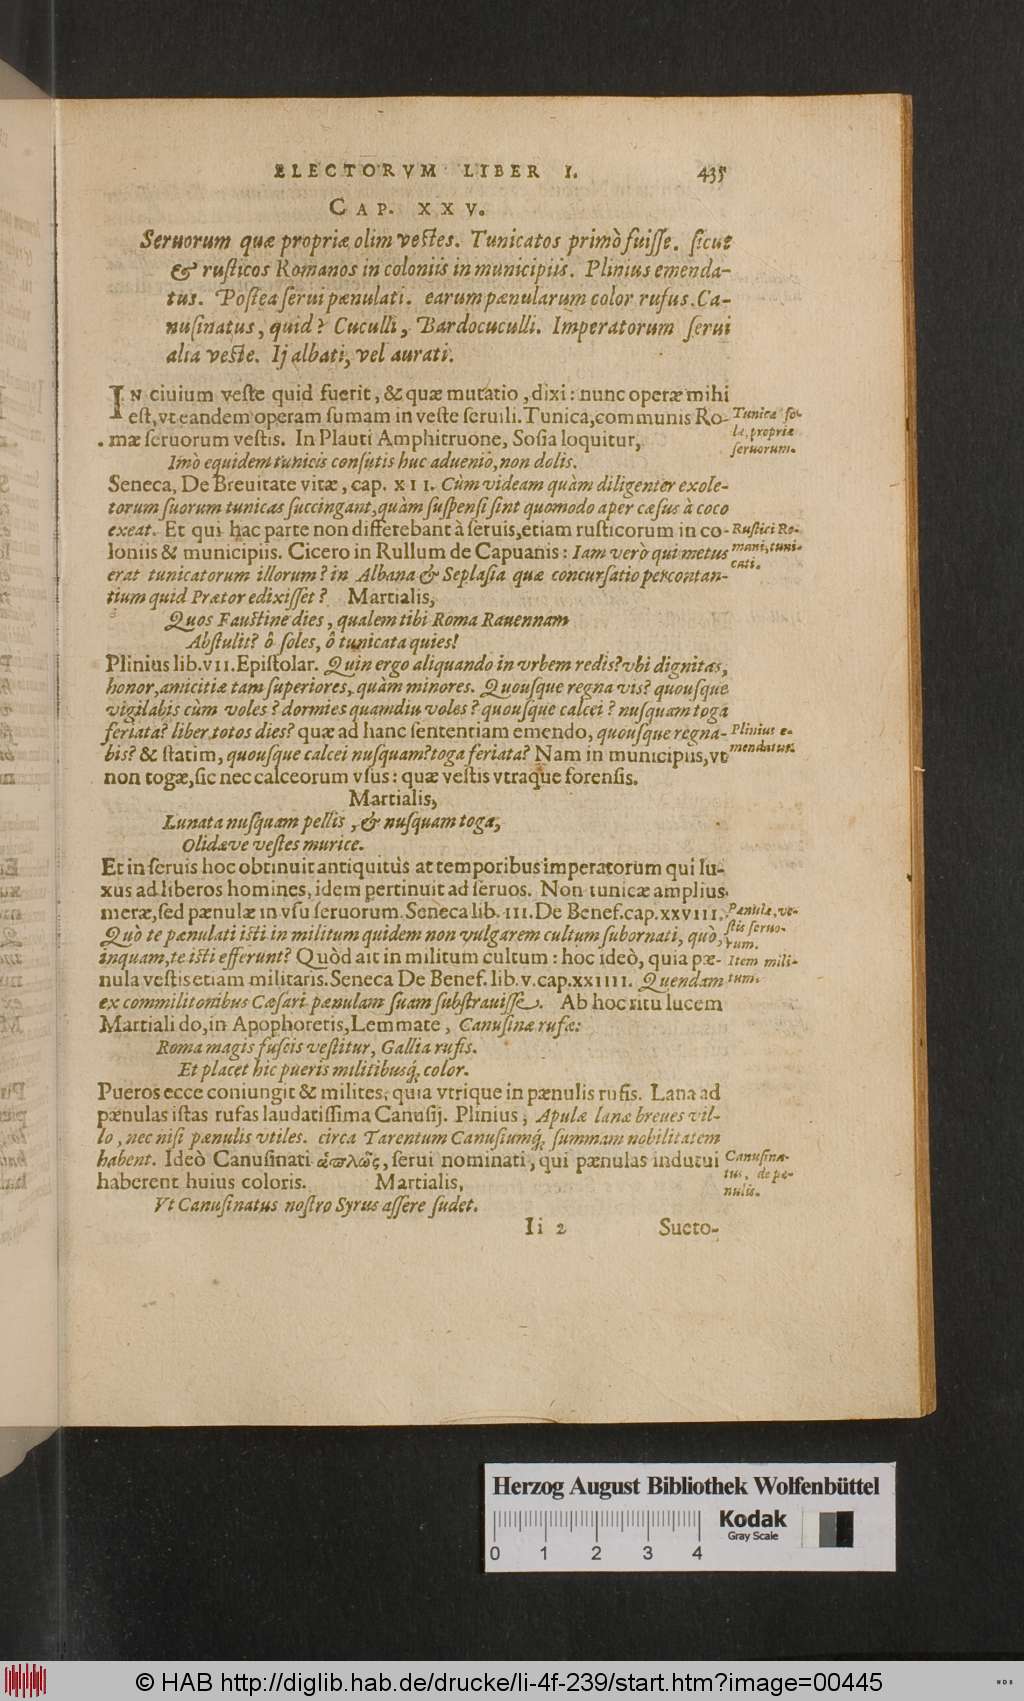 ELECTORVM LIBER I. 435
CAP. XXV.
Seruorum quæ propriæ olim vestes. Tunicatos primò fuisse. sicut
& rusticos Romanos in coloniis in municipiis. Plinius emenda-
tus. Postea serui pænulati. earum pænularum color rufus. Ca-
nusinatus, quid? Cuculli, Bardocuculli. Imperatorum serui
alia veste. Ij albati, vel aurati.
IN ciuium veste quid fuerit, & quæ mutatio, dixi: nunc operæ mihi
est, vt eandem operam sumam in veste seruili. Tunica, communis Ro-
mæ seruorum vestis. In Plauti Amphitruone, Sosia loquitur,
Tunica so-
la, propria
seruorum.
Imò equidem tunicis consutis huc aduenio, non dolis.
Seneca, De Breuitate vitæ, cap. XII. Cùm videam quàm diligenter exole-
torum suorum tunicas succingant, quàm suspensi sint quomodo aper cæsus à coco
exeat. Et qui hac parte non differebant à seruis, etiam rusticorum in co-
loniis & municipiis. Cicero in Rullum de Capuanis: Iam verò qui metus
erat tunicatorum illorum? in Albana & Seplasia quæ concursatio percontan-
tium quid Prætor edixisset? Martialis,
Rustici Ro-
mani, tuni-
cati.
Quos Faustine dies, qualem tibi Roma Rauennam
Abstulit? ô soles, ô tunicata quies!
Plinius lib. VII. Epistolar. Quin ergo aliquando in vrbem redis? vbi dignitas,
honor, amicitiæ tam superiores, quàm minores. Quousque regna vis? quousque
vigilabis cùm voles? dormies quamdiu voles? quousque calcei? nusquam toga
feriata? liber totos dies? quæ ad hanc sententiam emendo, quousque regna-
bis? & statim, quousque calcei nusquam? toga feriata? Nam in municipiis, vt
non togæ, sic nec calceorum vsus: quæ vestis vtraque forensis.
Plinius e-
mendatur.
Martialis,
Lunata nusquam pellis, & nusquam toga,
Olidæve vestes murice.
Et in seruis hoc obtinuit antiquitùs at temporibus imperatorum qui lu-
xus ad liberos homines, idem pertinuit ad seruos. Non tunicæ amplius
meræ, sed pænulæ in vsu seruorum. Seneca lib. III. De Benef. cap. XXVIII.
Quò te pænulati isti in militum quidem non vulgarem cultum subornati, quò,
inquam, te isti efferunt? Quòd ait in militum cultum: hoc ideò, quia pæ-
nula vestis etiam militaris. Seneca De Benef. lib. V. cap. XXIIII. Quendam
ex commilitonibus Cæsari pænulam suam substrauisse. Ab hoc ritu lucem
Martiali do, in Apophoretis, Lemmate, Canusinæ rufæ:
Pænula, ve-
stis seruo-
rum.
Item mili-
tum.
Roma magis fuscis vestitur, Gallia rufis.
Et placet hic pueris militibusq́; color.
Pueros ecce coniungit & milites, quia vtrique in pænulis rufis. Lana ad
pænulas istas rufas laudatissima Canusij. Plinius, Apulæ lanæ breues vil-
lo, nec nisi pænulis vtiles. circa Tarentum Canusiumq́; summam nobilitatem
habent. Ideò Canusinati ἁπλῶς, serui nominati, qui pænulas induti
haberent huius coloris. Martialis,
Canusina-
tus, de pæ-
nulis.
Vt Canusinatus nostro Syrus assere sudet.
Ii 2 Sueto-
Herzog August Bibliothek Wolfenbüttel
Kodak
Gray Scale
0 1 2 3 4
© HAB http://diglib.hab.de/drucke/li-4f-239/start.htm?image=00445